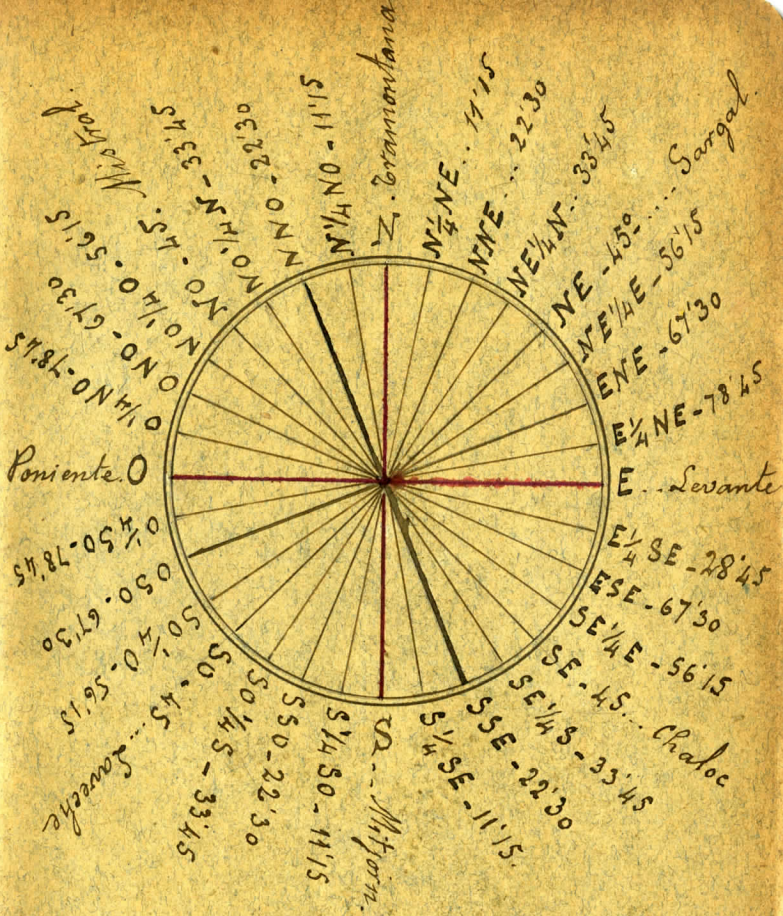 N. Tramontana
N¼NE .. 11'15
NNE ... 22'30
NE¼N .. 33'45
NE - 45º ..... Gargal.
NE¼E - 56'15
ENE - 67'30
E¼NE - 78'45
E ... Levante
E¼SE - 28'45
ESE - 67'30
SE¼E - 56'15
SE - 45 ... Chaloc
SE¼S - 33'45
SSE - 22'30
S¼SE - 11'15.
S ... Mitjorn.
S¼SO - 11'15
SSO - 22'30
SO¼S - 33'45
SO - 45 ... Laveche
SO¼O - 56'15
OSO - 67'30
O¼SO - 78'45
Poniente. O
O¼NO - 78'45
ONO - 67'30
NO¼O - 56'15
NO - 45. Mistral.
NO¼N - 33'45
NNO - 22'30
N¼NO - 11.15